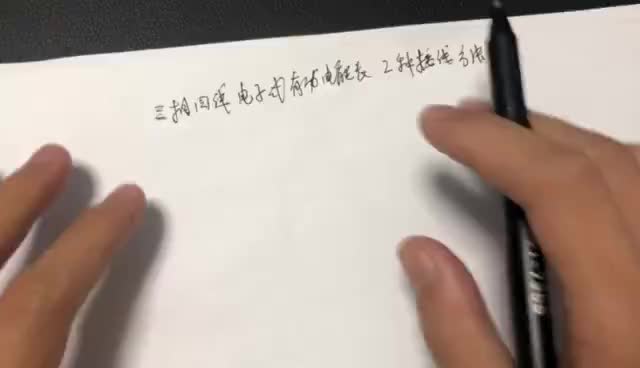 三相四线电子式有功电能表 2种接线方法